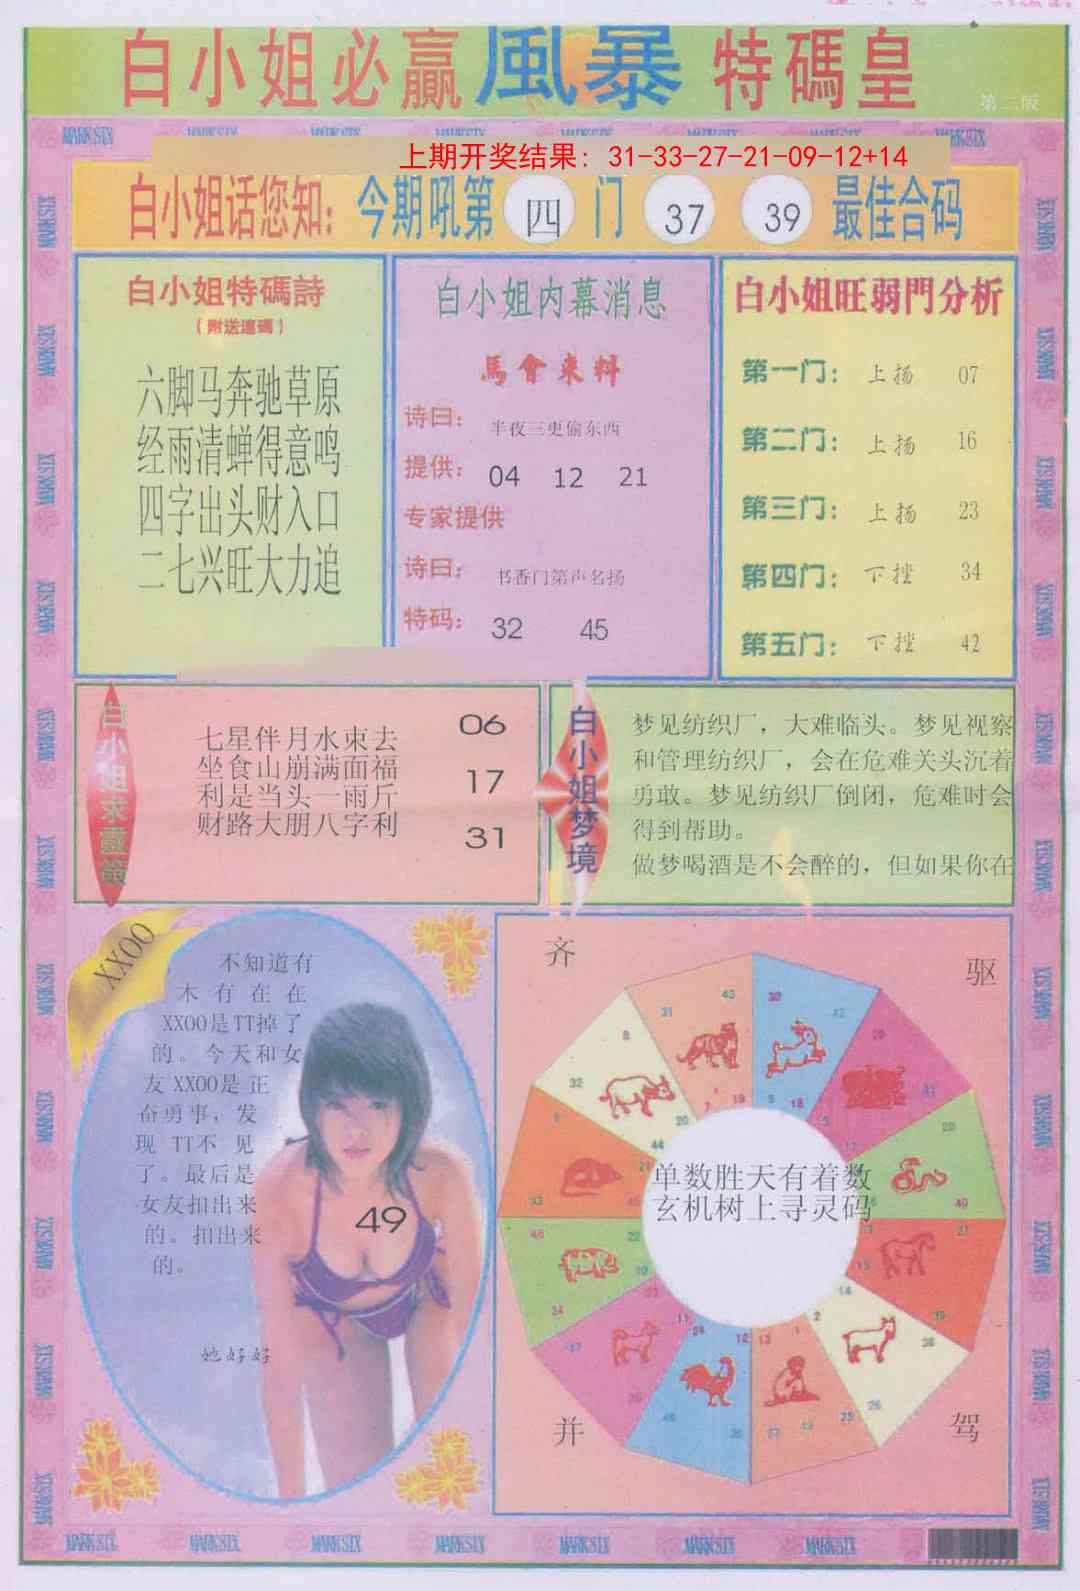 白小姐必贏風暴特碼皇
第二版
MARK SIX MARK SIX MARK SIX MARK SIX MARK SIX MARK SIX MARK SIX MARK SIX
上期开奖结果: 31-33-27-21-09-12+14
白小姐话您知: 今期吼第 四 门 37 39 最佳合码
白小姐特碼詩
(附送連碼)
六脚马奔驰草原
经雨清蝉得意鸣
四字出头财入口
二七兴旺大力追
白小姐内幕消息
馬會来料
诗曰: 半夜三更偷东西
提供: 04 12 21
专家提供
诗曰: 书香门第声名扬
特码: 32 45
白小姐旺弱門分析
第一门: 上扬 07
第二门: 上扬 16
第三门: 上扬 23
第四门: 下挫 34
第五门: 下挫 42
白小姐求靈籤
七星伴月水東去
坐食山崩满面福
利是当头一雨斤
财路大朋八字利
06
17
31
白小姐梦境
梦见纺织厂，大难临头。梦见视察
和管理纺织厂，会在危难关头沉着
勇敢。梦见纺织厂倒闭，危难时会
得到帮助。
做梦喝酒是不会醉的，但如果你在
XXOO
不知道有
木有在在
XXOO是TT掉了
的。今天和女
友XXOO是正
奋勇事，发
现TT不见
了。最后是
女友扣出来
的。扣出来
的。
49
她好好
齐
驱
单数胜天有着数
玄机树上寻灵码
并
驾
MARK SIX MARK SIX MARK SIX MARK SIX MARK SIX MARK SIX MARK SIX